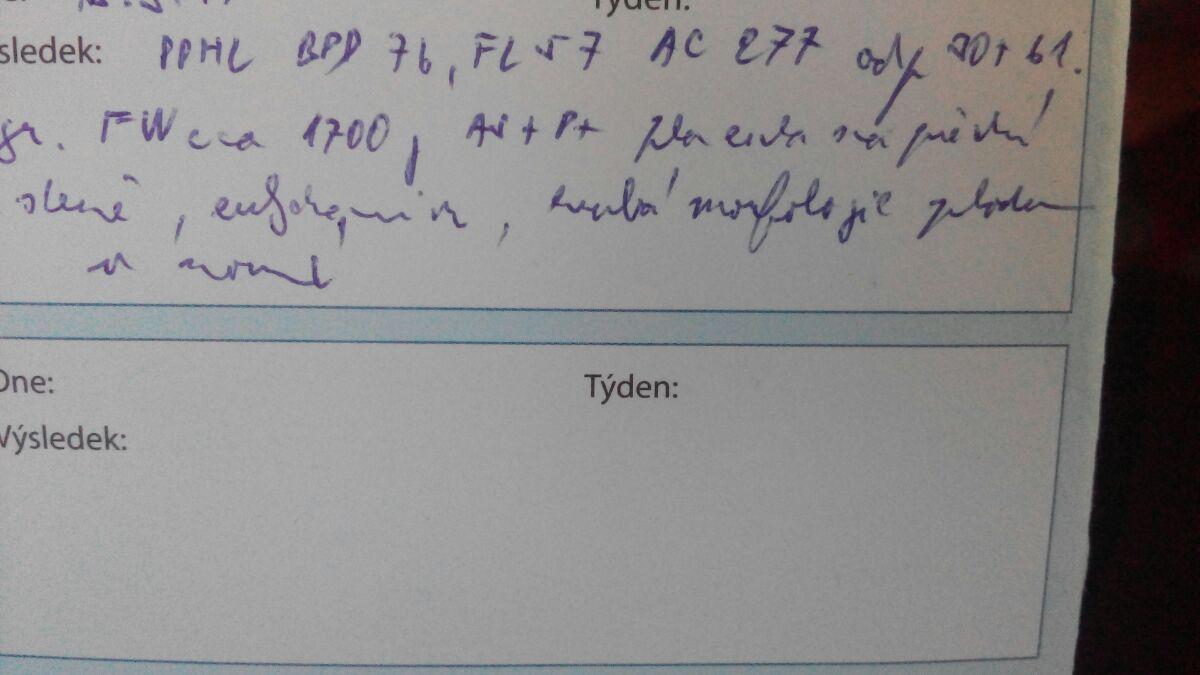 Týden:
sledek: PPHL BPD 76, FL 57 AC 277 odp 30+6t.
gr. FW cca 1700, AS+ P+ placenta na přední
stěně, hrubá morfologie plodu
v normě
Dne:
Týden:
Výsledek: